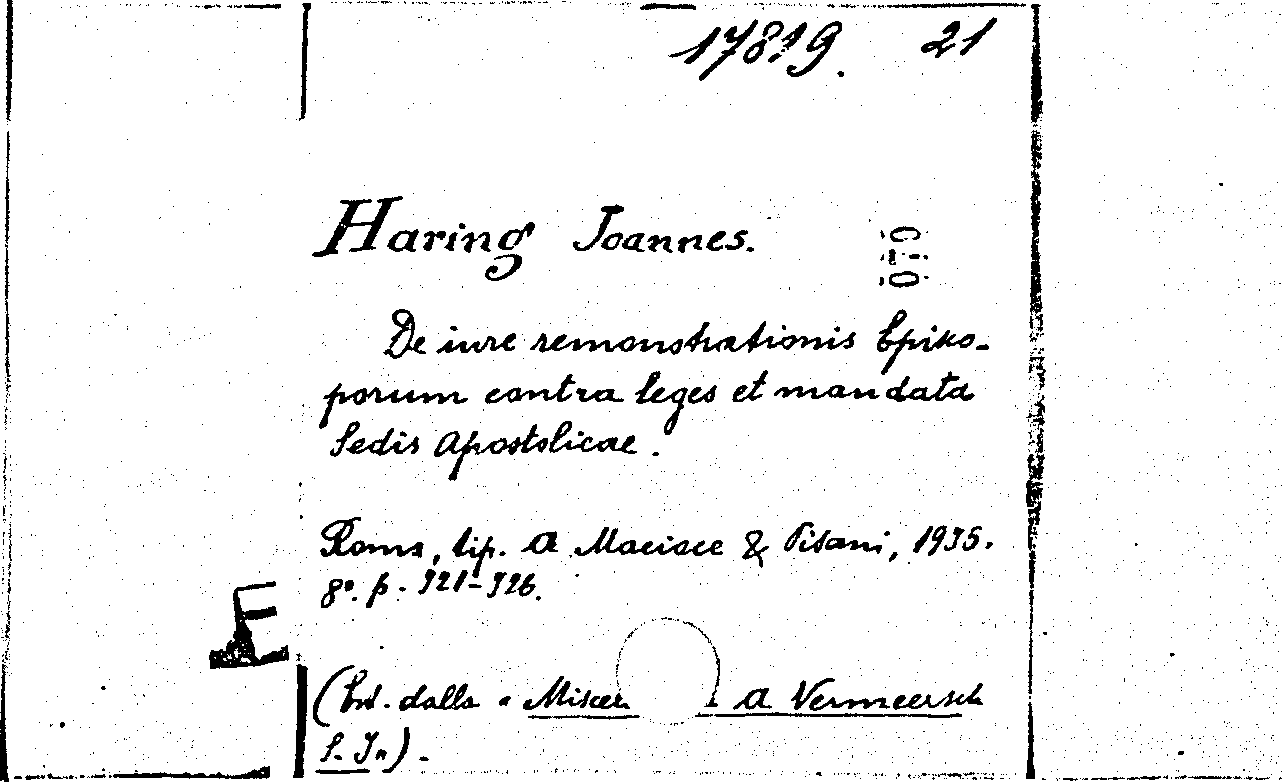 17819. 21
Haring Joannes.
De iure remonstrationis Epiko-
porum contra leges et mandata
Sedis Apostolicae.
Roma, tip. A Macioce & Pisani, 1935.
8º. p. 321-326.
(Est. dalla « Miscel A Vermeersch
S. I.).
E